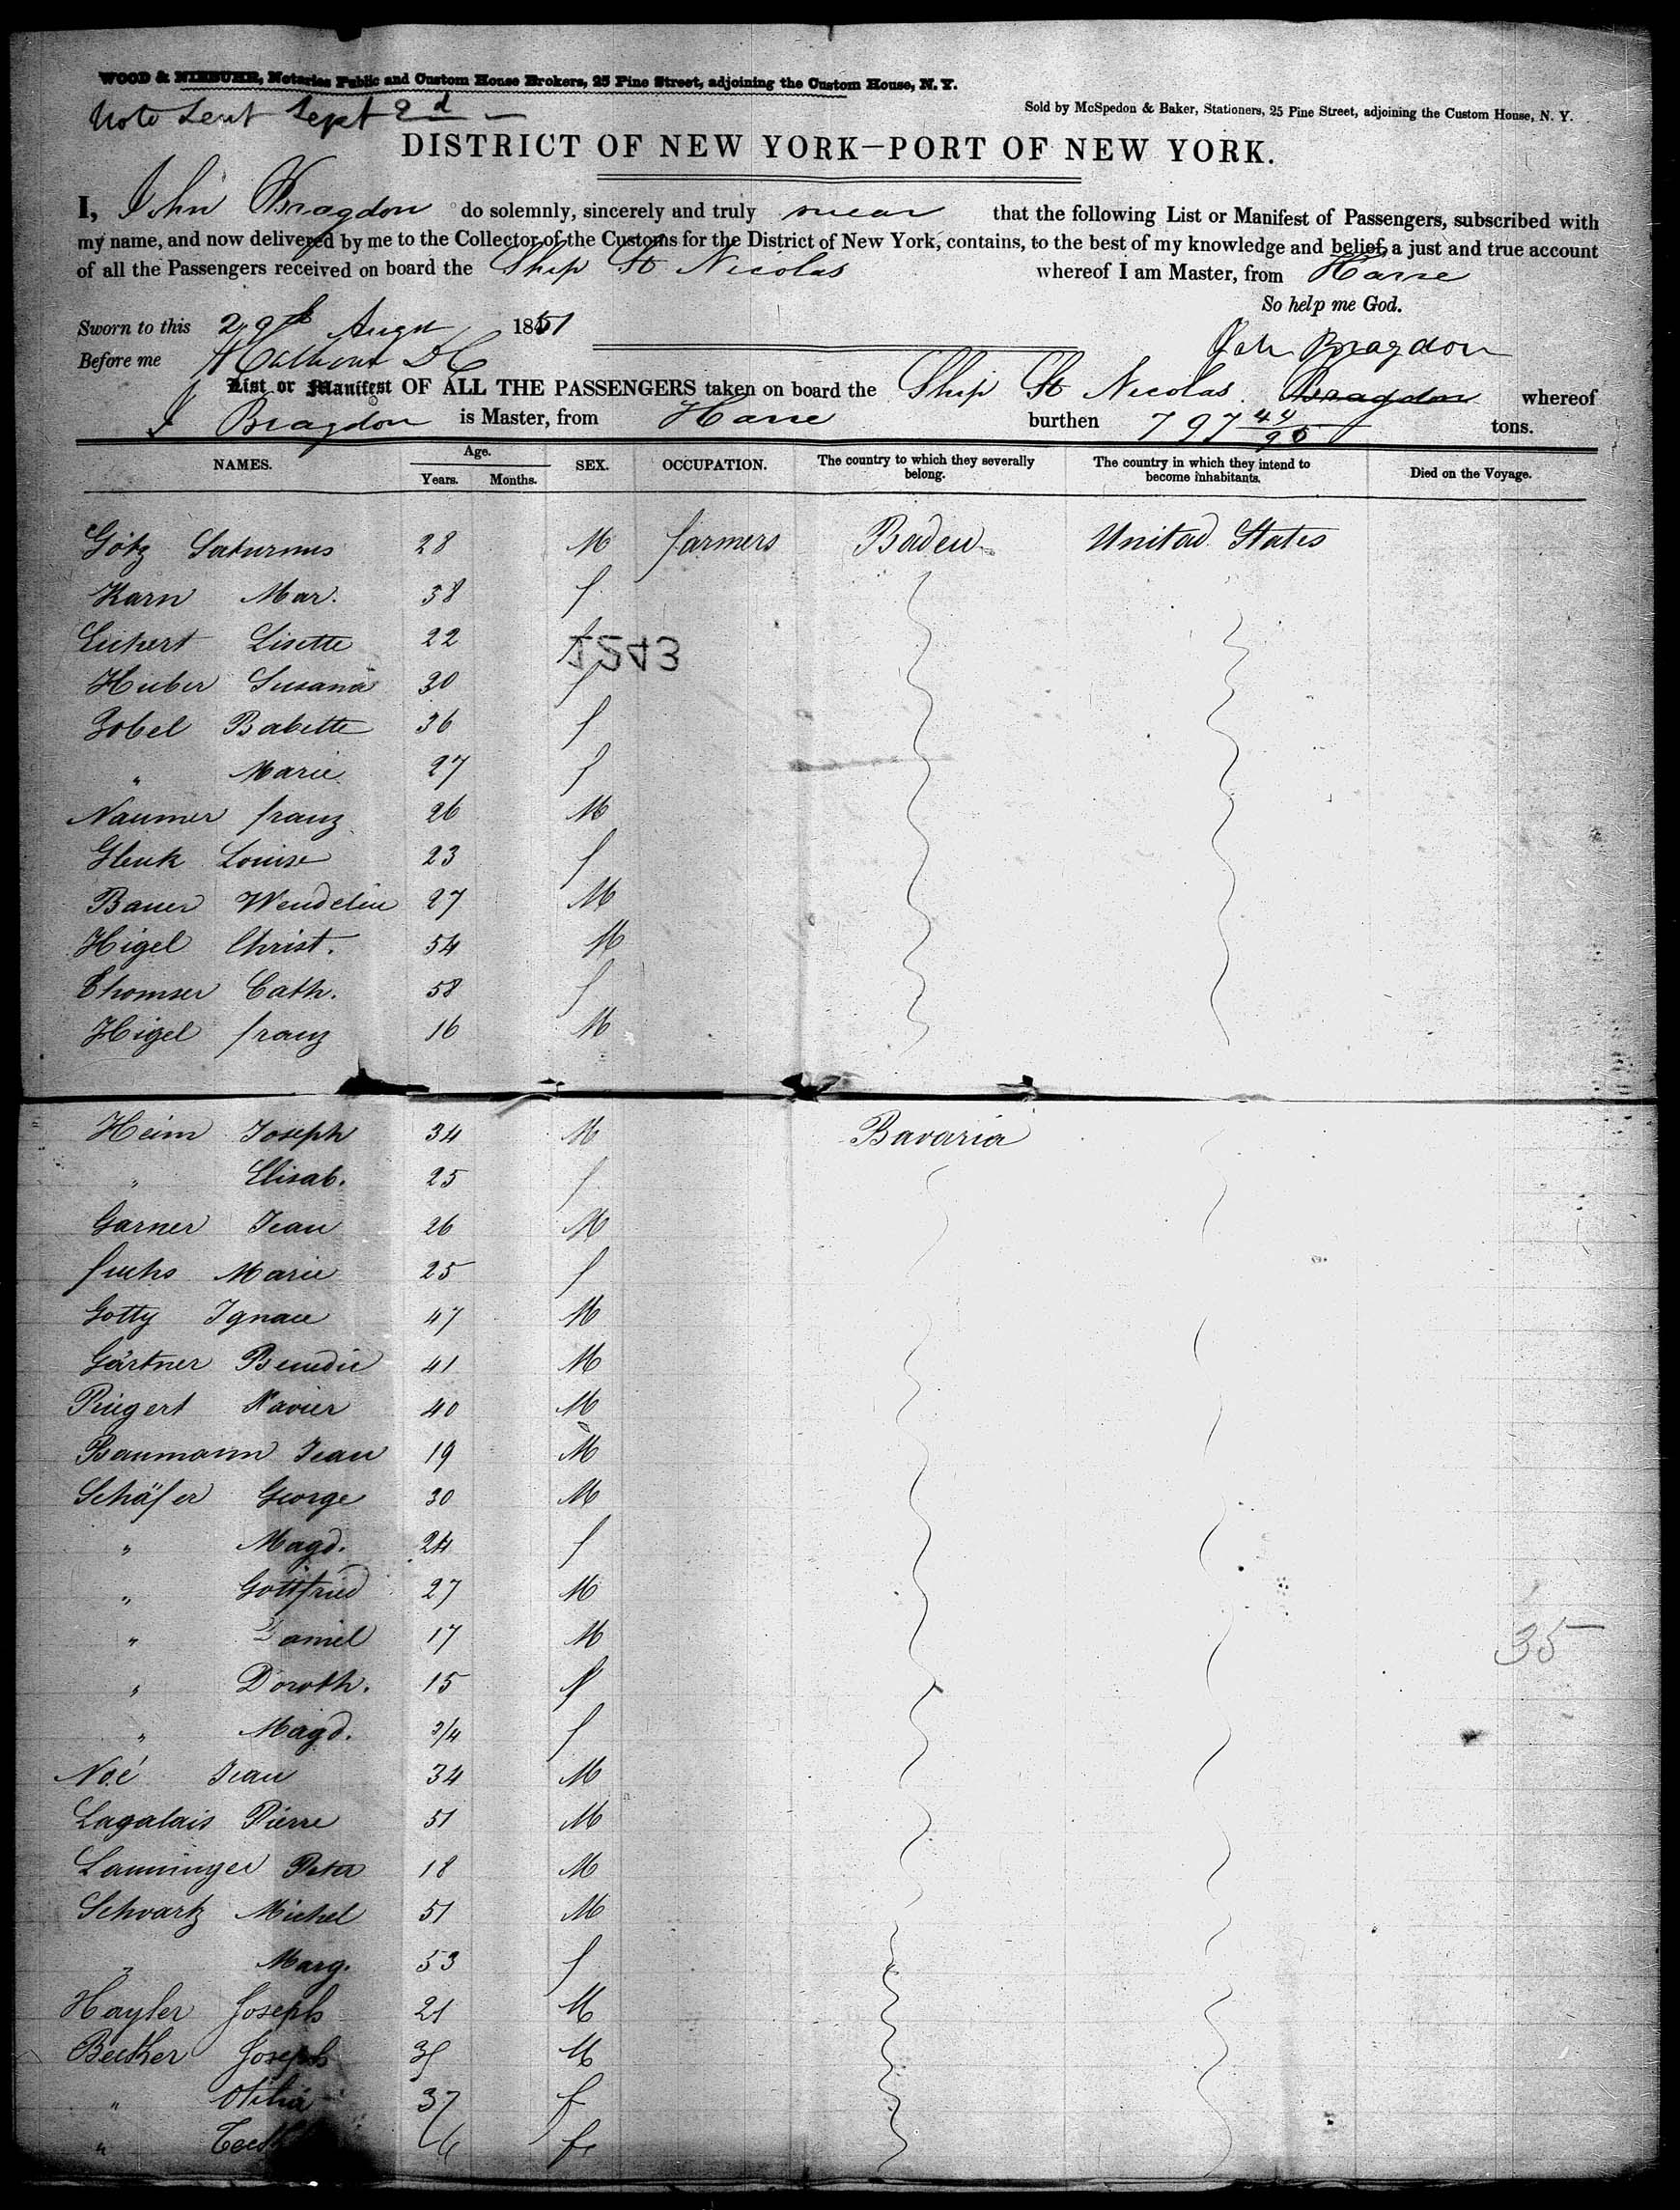 WOOD & NIEBUHR, Notaries Public and Custom House Brokers, 25 Pine Street, adjoining the Custom House, N. Y.
Note sent Sept 2d
Sold by McSpedon & Baker, Stationers, 25 Pine Street, adjoining the Custom House, N. Y.
DISTRICT OF NEW YORK—PORT OF NEW YORK.
I, John Bragdon do solemnly, sincerely and truly swear that the following List or Manifest of Passengers, subscribed with
my name, and now delivered by me to the Collector of the Customs for the District of New York, contains, to the best of my knowledge and belief, a just and true account
of all the Passengers received on board the Ship St Nicolas whereof I am Master, from Havre
So help me God.
Sworn to this 29th Augu 1851
John Bragdon
Before me
List or Manifest OF ALL THE PASSENGERS taken on board the Ship St Nicolas Bragdon whereof
J Bragdon is Master, from Havre burthen 797 44/95 tons.
NAMES. Age. Years. Months. SEX. OCCUPATION. The country to which they severally belong. The country in which they intend to become inhabitants. Died on the Voyage.
Götz Saturnus 28 M farmers Baden United States
Karn Mar. 38 f
Lichert Lisette 22 f
1243
Huber Susana 30 f
Zobel Babette 36 f
" Marie 27 f
Naumer franz 26 M
Glenk Louise 23 f
Bauer Wendelin 27 M
Higel Christ. 54 M
Thomser Cath. 58 f
Higel franz 16 M
Heim Joseph 34 M Bavaria
" Elisab. 25 f
Garner Jean 26 M
fuchs Marie 25 f
Gotty Ignace 47 M
Gärtner Benedic 41 M
Ringert Xavier 40 M
Baumann Jean 19 M
Schäfer George 30 M
" Magd. 24 f
" Gottfried 27 M
" Daniel 17 M
35
" Doroth. 15 f
" Magd. 3/4 f
Noé Jean 34 M
Lagalais Pierre 51 M
Lanninger Peter 18 M
Schvartz Michel 51 M
" Marg. 53 f
Hayler Joseph 21 M
Becker Joseph M
" Otilia 37 f
" 6 f